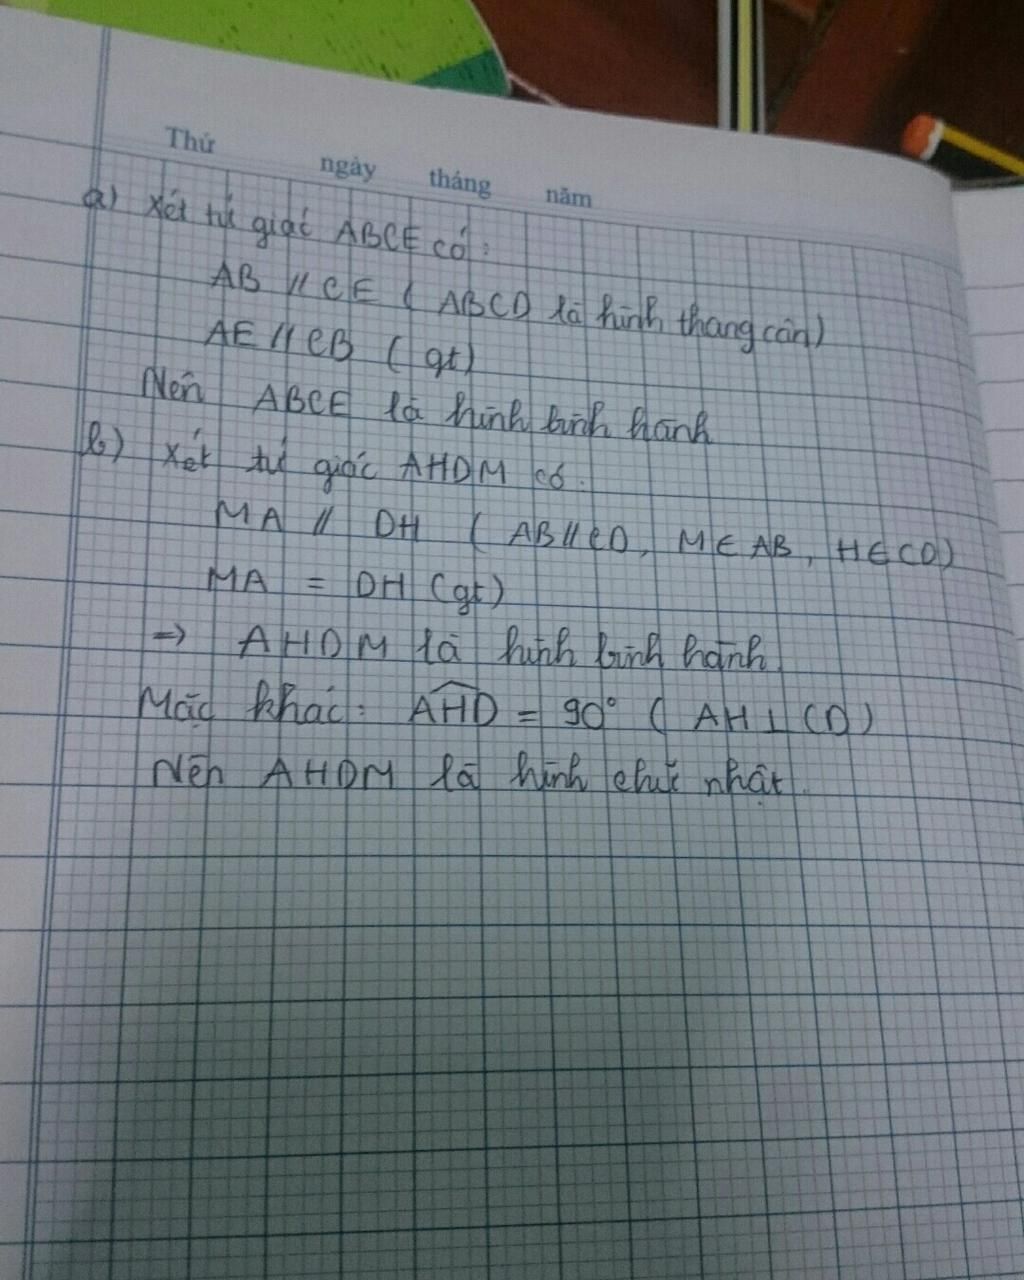 Thứ ngày tháng năm
a) Xét tứ giác ABCE có:
AB // CE ( ABCD là hình thang cân)
AE // CB ( gt)
Nên ABCE là hình bình hành
b) Xét tứ giác AHDM có.
MA // DH ( AB // CD, M ∈ AB, H ∈ CD)
MA = DH (gt)
=> AHDM là hình bình hành
Mặc khác: \widehat{AHD} = 90° ( AH ⊥ CD)
Nên AHDM là hình chữ nhật.